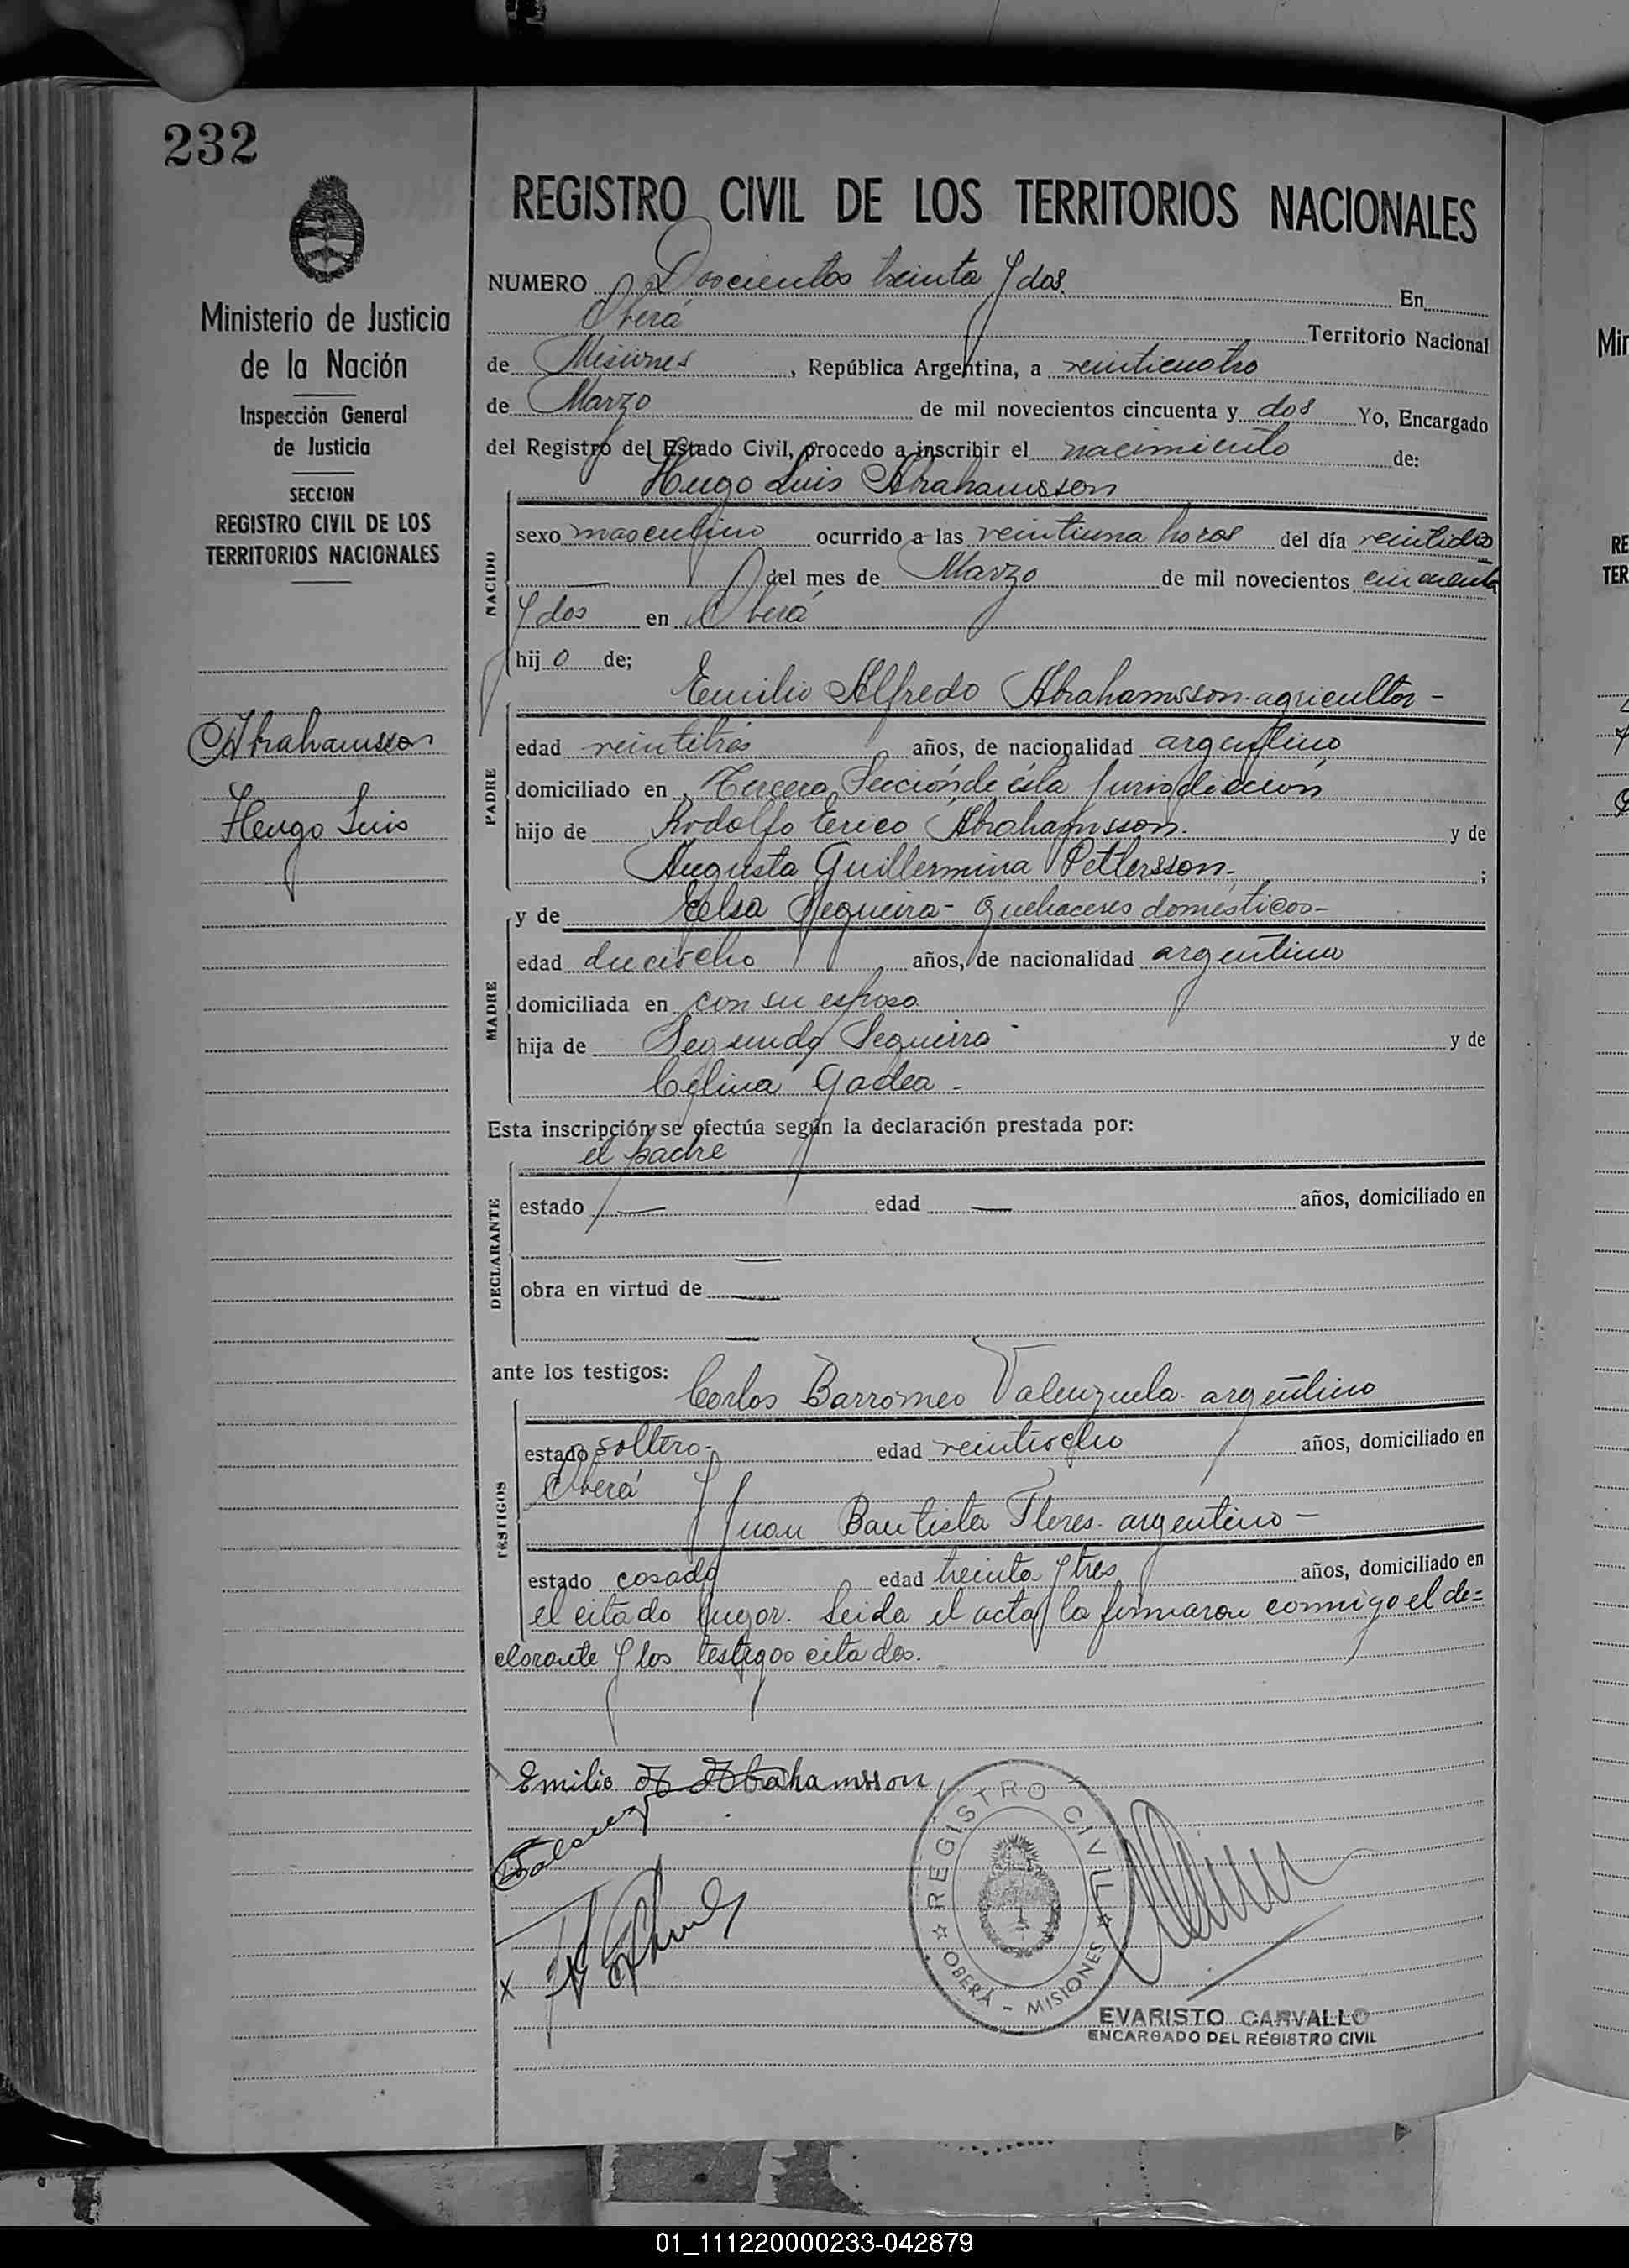 232
Ministerio de Justicia
de la Nación
Inspección General
de Justicia
SECCION
REGISTRO CIVIL DE LOS
TERRITORIOS NACIONALES
Abrahamsson
Hugo Luis
REGISTRO CIVIL DE LOS TERRITORIOS NACIONALES
NUMERO Doscientos treinta y dos. En
Oberá Territorio Nacional
de Misiones, República Argentina, a veinticuatro
de Marzo de mil novecientos cincuenta y dos Yo, Encargado
del Registro del Estado Civil, procedo a inscribir el nacimiento de:
Hugo Luis Abrahamsson
NACIDO
sexo masculino ocurrido a las veintiuna horas del día veintidós
— del mes de Marzo de mil novecientos cincuenta
y dos en Oberá
hijo de;
Emilio Alfredo Abrahamsson-agricultor-
PADRE
edad veintitrés años, de nacionalidad argentino,
domiciliado en Tercera Sección de ésta Jurisdicción
hijo de Rodolfo Erico Abrahamsson. y de
Augusta Guillermina Pettersson.;
y de Elsa Sequeira- quehaceres domésticos-
MADRE
edad dieciocho años, de nacionalidad argentina
domiciliada en con su esposo.
hija de Segundo Sequeira- y de
Celina Gadea-
Esta inscripción se efectúa según la declaración prestada por:
el padre
DECLARANTE
estado — edad — años, domiciliado en
—
obra en virtud de —
—
ante los testigos:
Carlos Barromeo Valenzuela- argentino
TESTIGOS
estado soltero- edad veintiocho años, domiciliado en
Oberá y
Juan Bautista Flores- argentino-
estado casado edad treinta y tres años, domiciliado en
el citado lugar. Leida el acta la firmaron conmigo el de=
clarante y los testigos citados.
Emilio A Abrahamsson
REGISTRO CIVIL
OBERÁ - MISIONES
EVARISTO CARVALLO
ENCARGADO DEL REGISTRO CIVIL
Min
RE
TER
01_111220000233-042879